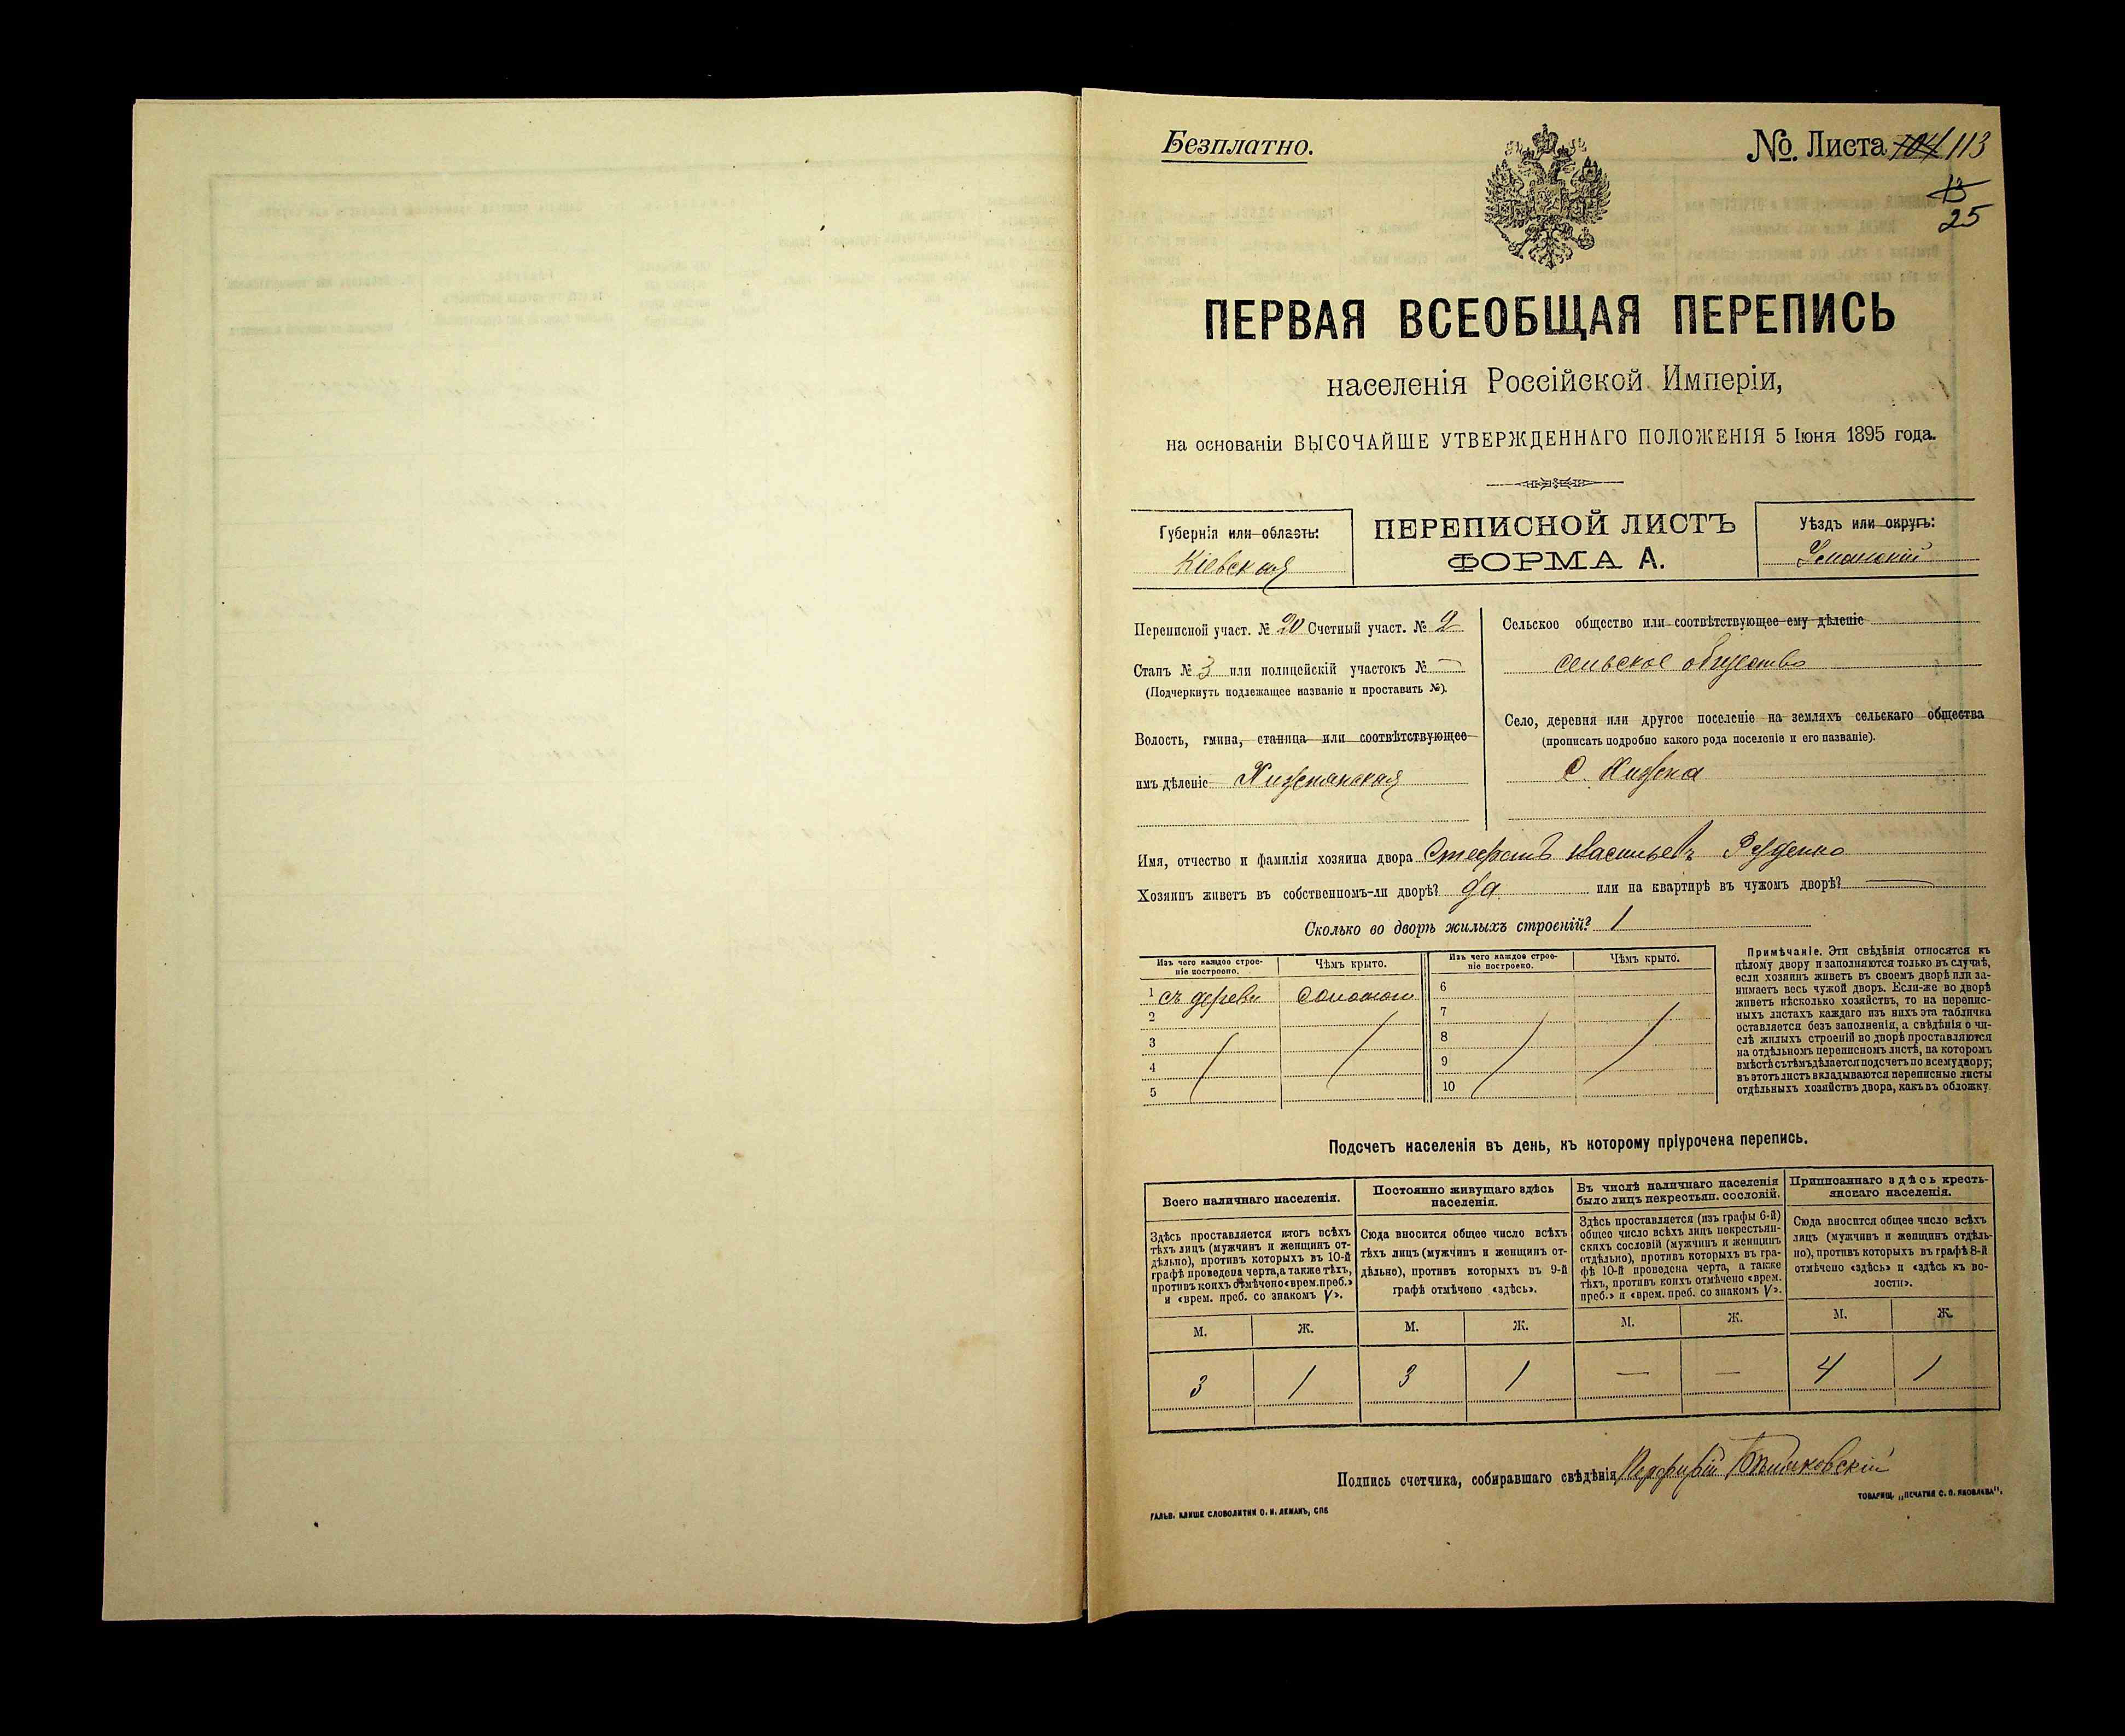 Безплатно.
№. Листа 104 113
13
25
ПЕРВАЯ ВСЕОБЩАЯ ПЕРЕПИСЬ
населенія Россійской Имперіи,
на основаніи ВЫСОЧАЙШЕ УТВЕРЖДЕННАГО ПОЛОЖЕНІЯ 5 Іюня 1895 года.
Губернія или область:
Кіевская
ПЕРЕПИСНОЙ ЛИСТЪ
ФОРМА А.
Уѣздъ или округъ:
Уманскій
Переписной участ. № 20 Счетный участ. № 2
Станъ № 3 или полицейскій участокъ № —
(Подчеркнуть подлежащее названіе и проставить №).
Волость, гмина, станица или соотвѣтствующее
имъ дѣленіе Хижнянская
Сельское общество или соотвѣтствующее ему дѣленіе
сельское общество
Село, деревня или другое поселеніе на земляхъ сельскаго общества
(прописать подробно какого рода поселеніе и его названіе).
С. Хижна
Имя, отчество и фамилія хозяина двора Стефанъ Васильевъ Руденко
Хозяинъ живетъ въ собственномъ-ли дворѣ? да или на квартирѣ въ чужомъ дворѣ? —
Сколько во дворѣ жилыхъ строеній? 1
Изъ чего каждое строе-
ніе построено.
Чѣмъ крыто.
Изъ чего каждое строе-
ніе построено.
Чѣмъ крыто.
1 съ дерева соломою
2
3
4
5
6
7
8
9
10
Примѣчаніе. Эти свѣдѣнія относятся къ
цѣлому двору и заполняются только въ случаѣ,
если хозяинъ живетъ въ своемъ дворѣ или за-
нимаетъ весь чужой дворъ. Если-же во дворѣ
живетъ нѣсколько хозяйствъ, то на перепис-
ныхъ листахъ каждаго изъ нихъ эта табличка
оставляется безъ заполненія, а свѣдѣнія о чи-
слѣ жилыхъ строеній во дворѣ проставляются
на отдѣльномъ переписномъ листѣ, на которомъ
вмѣстѣ съ тѣмъ дѣлается подсчетъ по всему двору;
въ этотъ листъ вкладываются переписные листы
отдѣльныхъ хозяйствъ двора, какъ въ обложку.
Подсчетъ населенія въ день, къ которому пріурочена перепись.
Всего наличнаго населенія.
Здѣсь проставляется итогъ всѣхъ
тѣхъ лицъ (мужчинъ и женщинъ от-
дѣльно), противъ которыхъ въ 10-й
графѣ проведена черта, а также тѣхъ,
противъ коихъ отмѣчено «врем. преб.»
и «врем. преб. со знакомъ V».
Постоянно живущаго здѣсь
населенія.
Сюда вносится общее число всѣхъ
тѣхъ лицъ (мужчинъ и женщинъ от-
дѣльно), противъ которыхъ въ 9-й
графѣ отмѣчено «здѣсь».
Въ числѣ наличнаго населенія
было лицъ некрестьян. сословій.
Здѣсь проставляется (изъ графы 6-й)
общее число всѣхъ лицъ некрестьян-
скихъ сословій (мужчинъ и женщинъ
отдѣльно), противъ которыхъ въ гра-
фѣ 10-й проведена черта, а также
тѣхъ, противъ коихъ отмѣчено «врем.
преб.» и «врем. преб. со знакомъ V».
Приписаннаго здѣсь кресть-
янскаго населенія.
Сюда вносится общее число всѣхъ
лицъ (мужчинъ и женщинъ отдѣль-
но), противъ которыхъ въ графѣ 8-й
отмѣчено «здѣсь» и «здѣсь къ во-
лости».
М. Ж. М. Ж. М. Ж. М. Ж.
3 1 3 1 — — 4 1
Подпись счетчика, собиравшаго свѣдѣнія
ГАЛЬВ. КЛИШЕ СЛОВОЛИТНИ О. И. ЛЕМАНЪ, СПБ
ТОВАРИЩ. „ПЕЧАТНЯ С. П. ЯКОВЛЕВА".